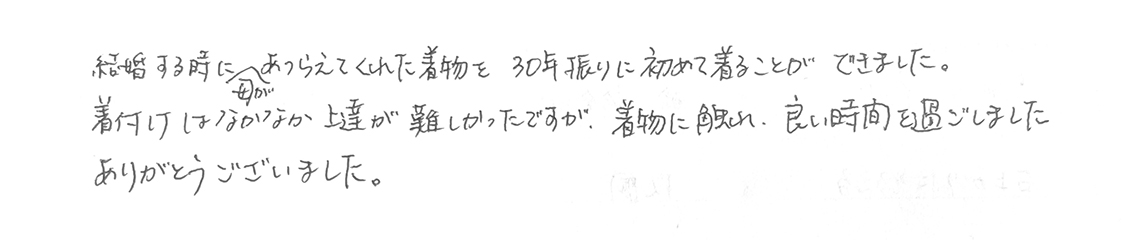 結婚する時に母があつらえてくれた着物を30年振りに初めて着ることができました。
着付けはなかなか上達が難しかったですが、着物に触れ、良い時間を過ごしました
ありがとうございました。